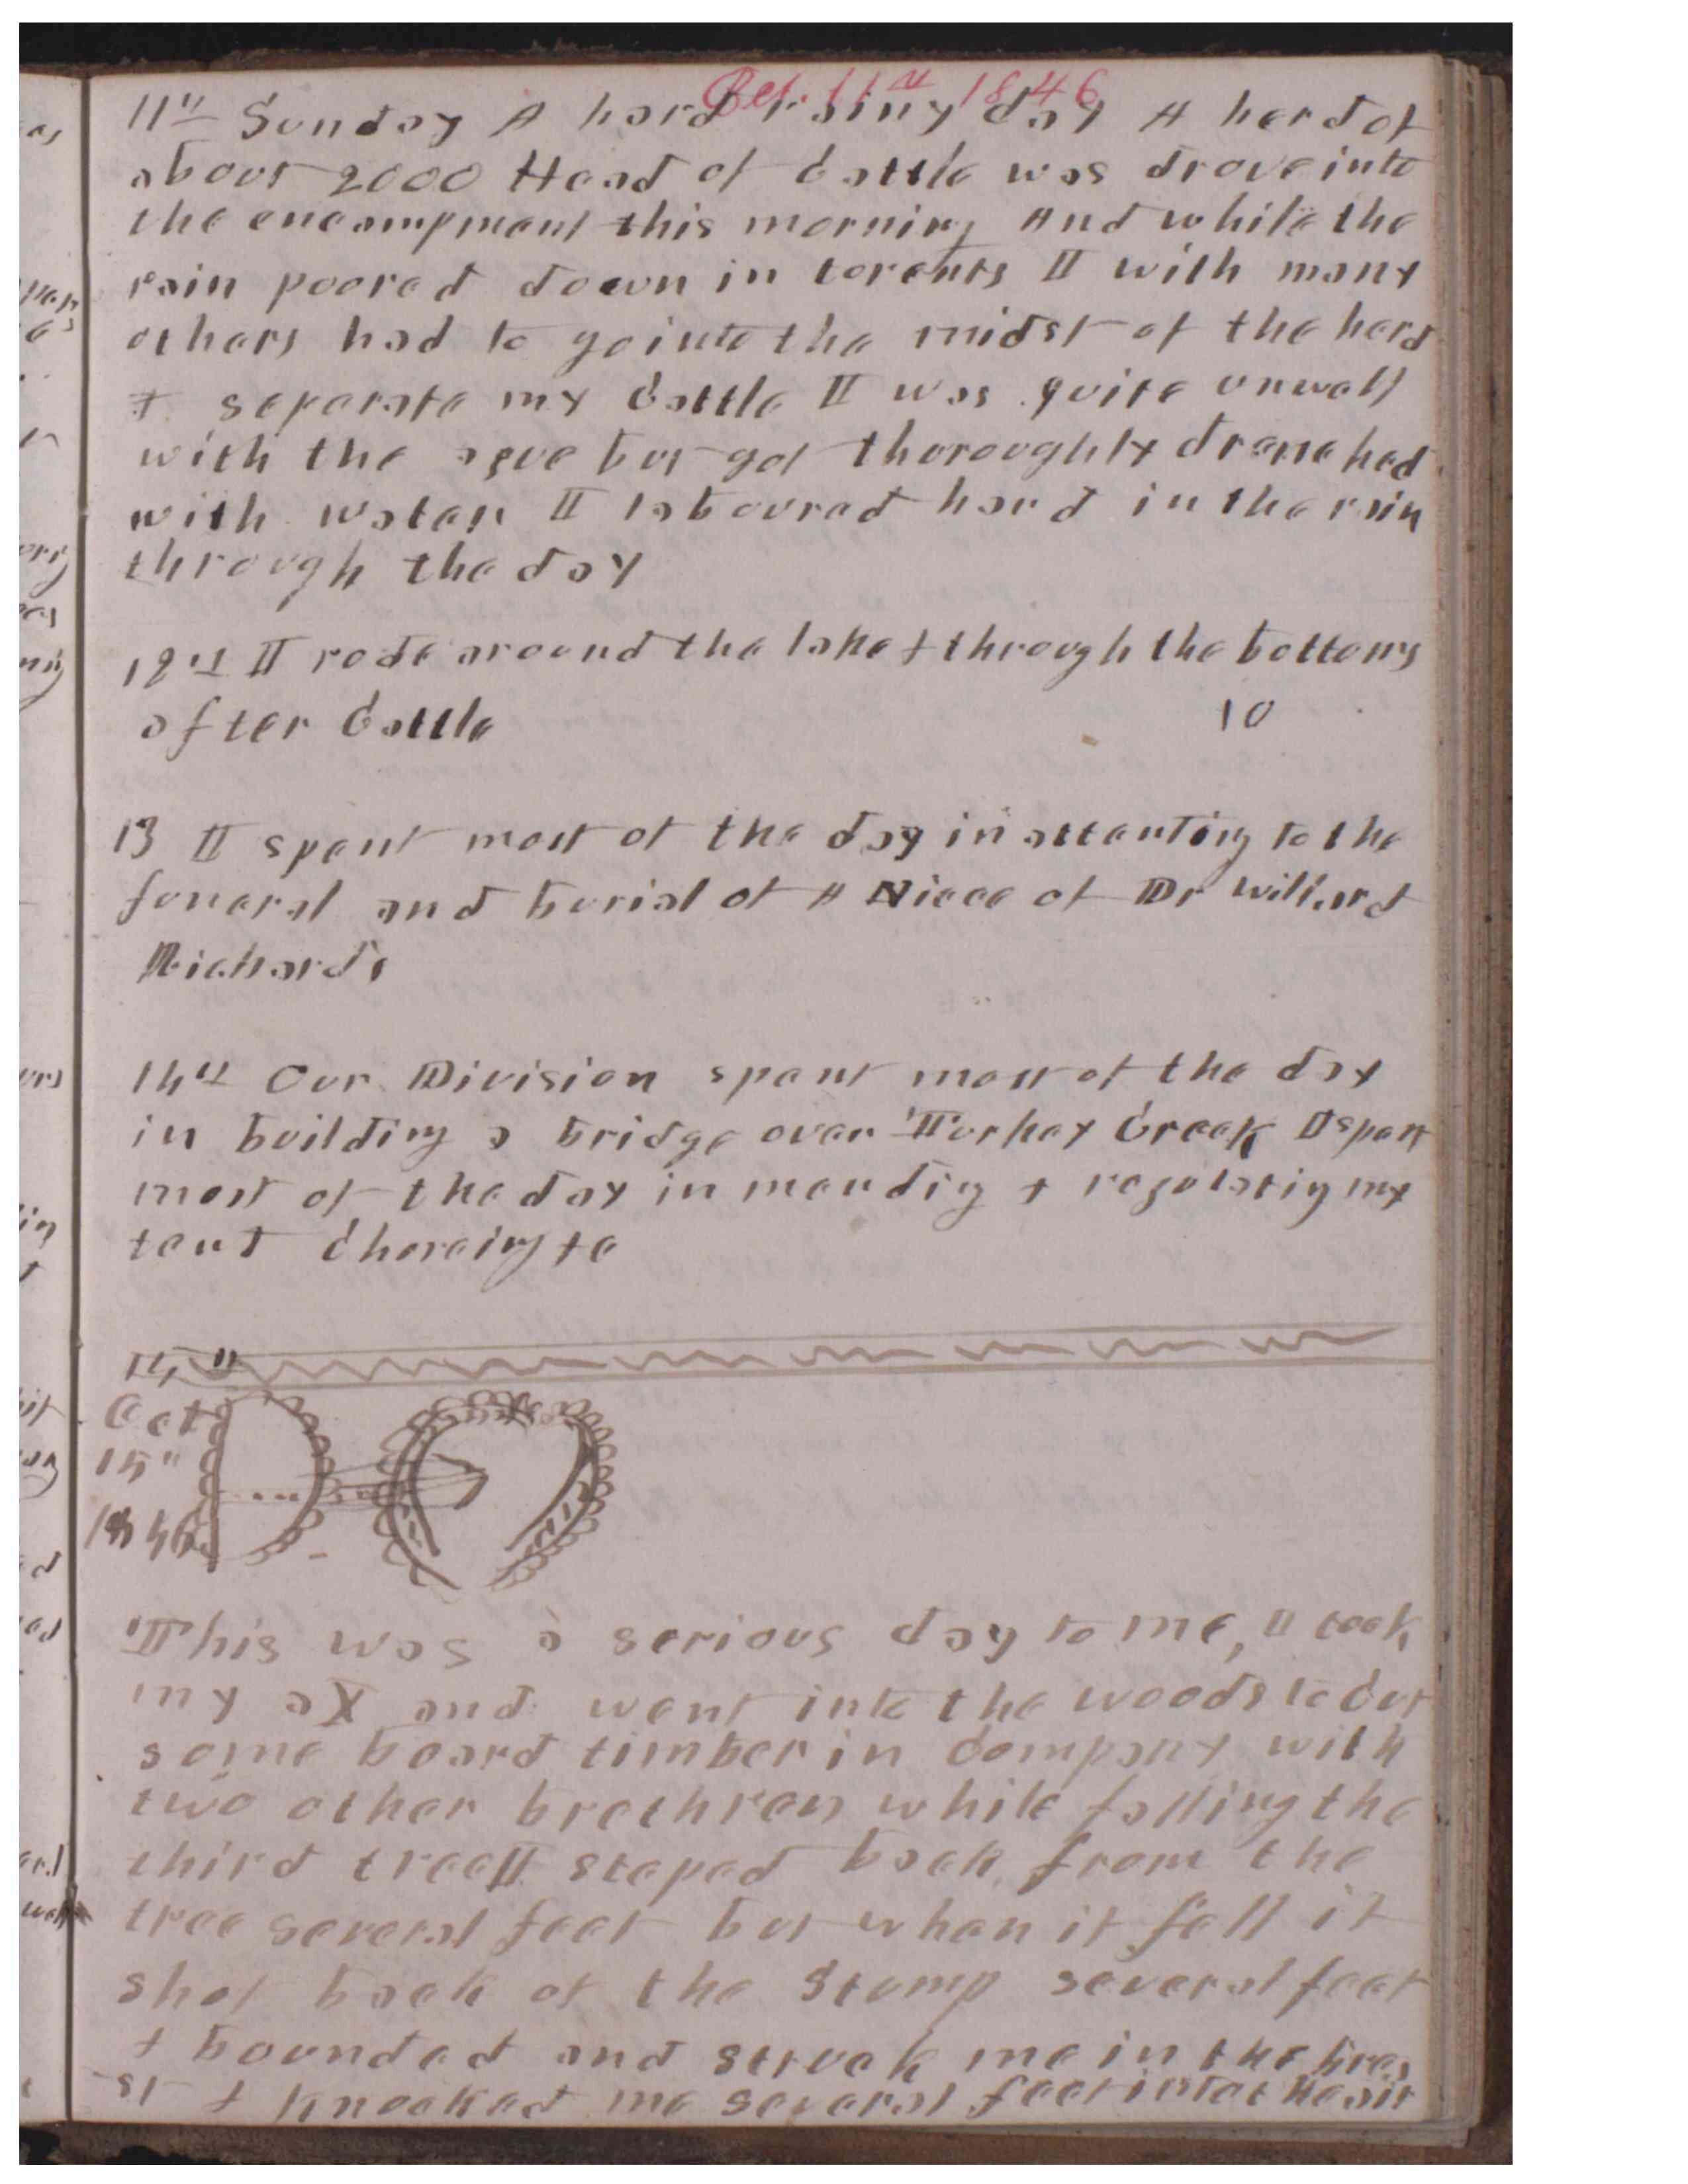 Oct. 11th 1846
11th Sunday A hard rainy day A herd of
about 2000 Head of Cattle was drove into
the encampment this morning And while the
rain poored down in torents I with many
others had to go into the midst of the herd
& separate my Cattle I was quite unwell
with the ague but got thoroughly drenched
with water I laboured hard in the rain
through the day
12th I rode around the lake & through the bottoms
after Cattle 10
13 I spent most of the day in attenting to the
funeral and burial of A Niece of Dr Willard
Richards
14th Our Division spent most of the day
in building a bridge over Turkey Creek I spent
most of the day in mending & regulating my
tent Choreing &c
15th
Oct
15th
1846
This was a serious day to me, I took
my aX and went into the woods to cut
some board timber in Company with
two other brethren while falling the
third tree I steped back from the
tree several feet but when it fell it
shot back of the Stump several feet
& bounded and struck me in the brea
st & knocked me several feet into the air